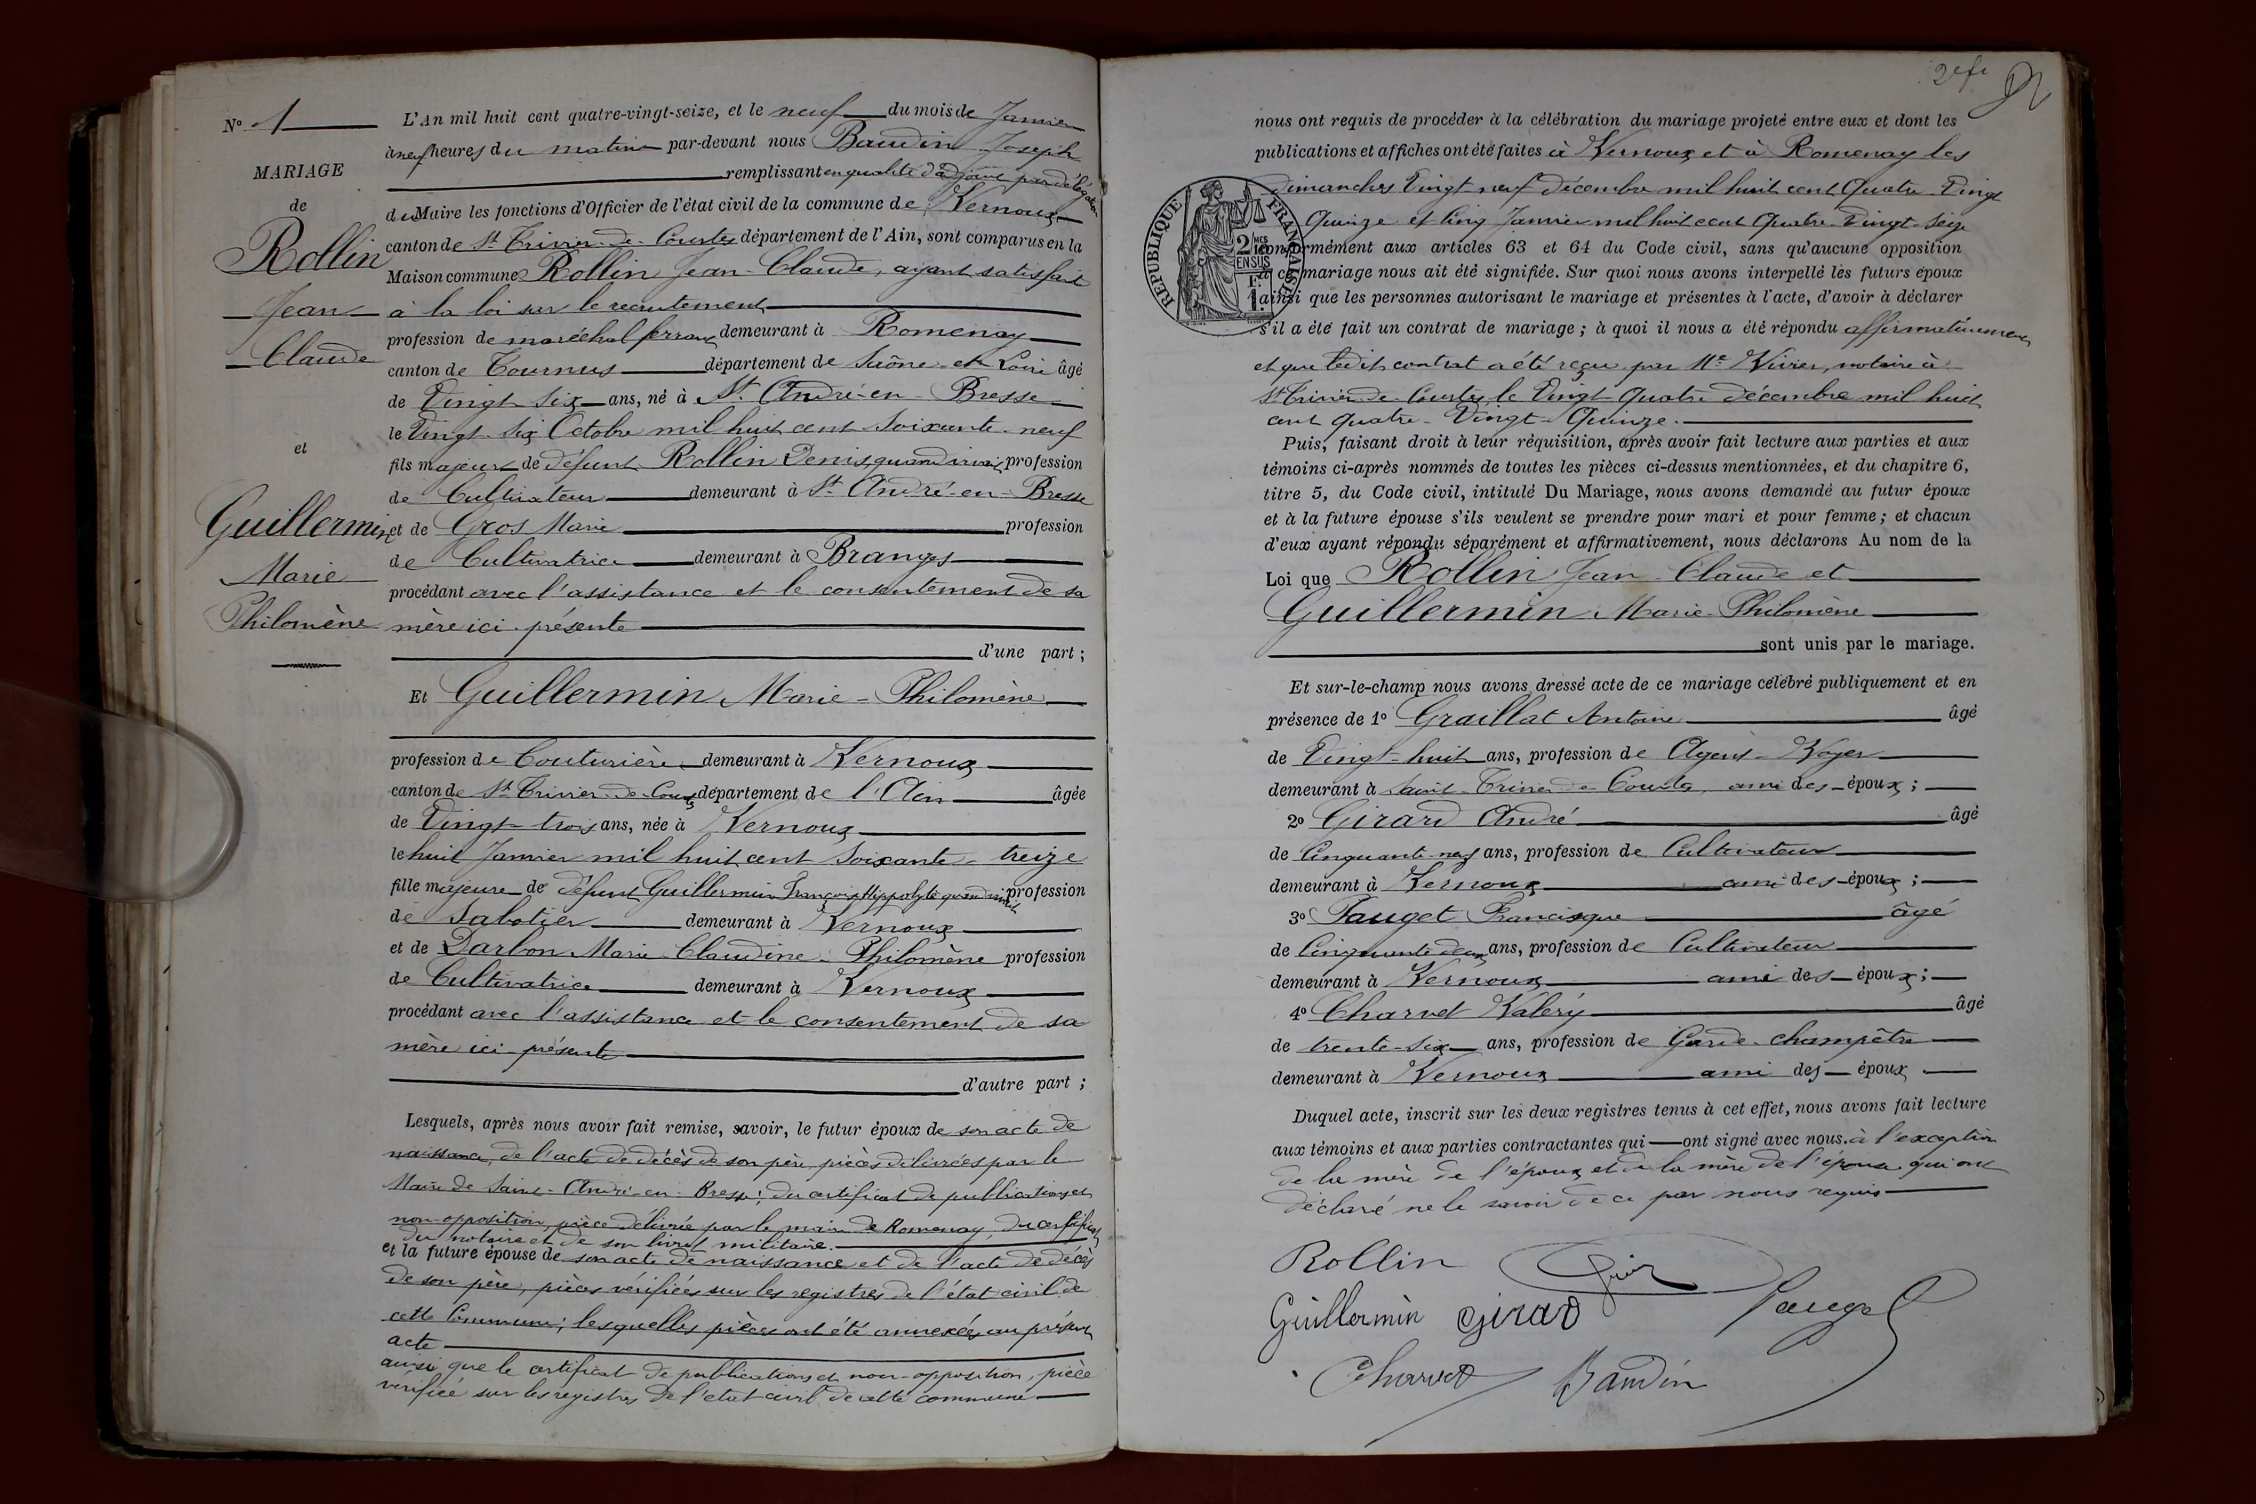 N° 1
MARIAGE
de
Rollin
Jean
Claude
et
Guillermin
Marie
Philomène
L'An mil huit cent quatre-vingt-seize, et le neuf du mois de Janvier
à neuf heures du matin par-devant nous Baudin Joseph
remplissant en qualité d'adjoint par délégation
du Maire les fonctions d'Officier de l'état civil de la commune de Vernoux
canton de St Trivier-de-Courtes département de l'Ain, sont comparus en la
Maison commune Rollin Jean-Claude, ayant satisfait
à la loi sur le recrutement
profession de maréchal ferrant demeurant à Romenay
canton de Tournus département de Saône-et-Loire âgé
de Vingt-six ans, né à St André-en-Bresse
le Vingt-six Octobre mil huit cent Soixante-neuf
fils majeur de défunt Rollin Denis, quand vivait, profession
de Cultivateur demeurant à St André-en-Bresse
et de Gros Marie profession
de Cultivatrice demeurant à Branges
procédant avec l'assistance et le consentement de sa
mère ici présente
d'une part ;
Et Guillermin Marie-Philomène
profession de Couturière demeurant à Vernoux
canton de St Trivier-de-Courtes département de l'Ain âgée
de Vingt-trois ans, née à Vernoux
le huit Janvier mil huit cent Soixante-treize
fille majeure de défunt Guillermin François Hippolyte quand vivait profession
de Sabotier demeurant à Vernoux
et de Darbon Marie-Claudine-Philomène profession
de Cultivatrice demeurant à Vernoux
procédant avec l'assistance et le consentement de sa
mère ici présente
d'autre part ;
Lesquels, après nous avoir fait remise, savoir, le futur époux de son acte de
naissance, de l'acte de décès de son père, pièces délivrées par le
Maire de Saint-André-en-Bresse ; du certificat de publications et
non-opposition, pièce délivrée par le maire de Romenay, du certificat
du notaire et de son livret militaire.
et la future épouse de son acte de naissance et de l'acte de décès
de son père, pièces vérifiées sur les registres de l'état civil de
cette Commune ; lesquelles pièces ont été annexées au présent
acte
ainsi que le certificat de publications et non-opposition, pièce
vérifiée sur les registres de l'état civil de cette commune
2e fe
nous ont requis de procéder à la célébration du mariage projeté entre eux et dont les
publications et affiches ont été faites à Vernoux et à Romenay les
dimanches Vingt neuf décembre mil huit cent Quatre-Vingt
Quinze et Cinq Janvier mil huit cent Quatre-Vingt-Seize
conformément aux articles 63 et 64 du Code civil, sans qu'aucune opposition
à ce mariage nous ait été signifiée. Sur quoi nous avons interpellé les futurs époux
ainsi que les personnes autorisant le mariage et présentes à l'acte, d'avoir à déclarer
s'il a été fait un contrat de mariage ; à quoi il nous a été répondu affirmativement
et que ledit contrat a été reçu par Me Vivier, notaire à
St Trivier-de-Courtes, le Vingt-Quatre décembre mil huit
cent Quatre-Vingt-Quinze.
RÉPUBLIQUE FRANÇAISE
2 MES EN SUS
1 F.
Puis, faisant droit à leur réquisition, après avoir fait lecture aux parties et aux
témoins ci-après nommés de toutes les pièces ci-dessus mentionnées, et du chapitre 6,
titre 5, du Code civil, intitulé Du Mariage, nous avons demandé au futur époux
et à la future épouse s'ils veulent se prendre pour mari et pour femme ; et chacun
d'eux ayant répondu séparément et affirmativement, nous déclarons Au nom de la
Loi que Rollin Jean-Claude et
Guillermin Marie-Philomène
sont unis par le mariage.
Et sur-le-champ nous avons dressé acte de ce mariage célébré publiquement et en
présence de 1° Graillat Antoine âgé
de Vingt-huit ans, profession de Agent-Voyer
demeurant à Saint-Trivier-de-Courtes, ami des époux ;
2° Girard André âgé
de Cinquante-neuf ans, profession de Cultivateur
demeurant à Vernoux ami des époux ;
3° Pauget Francisque âgé
de Cinquante deux ans, profession de Cultivateur
demeurant à Vernoux ami des époux ;
4° Charvet Valéry âgé
de trente-six ans, profession de Garde-champêtre
demeurant à Vernoux ami des époux
Duquel acte, inscrit sur les deux registres tenus à cet effet, nous avons fait lecture
aux témoins et aux parties contractantes qui ont signé avec nous, à l'exception
de la mère de l'époux et de la mère de l'épouse qui ont
déclaré ne le savoir de ce par nous requis
Rollin
Guillermin Girard Pauget
Charvet Baudin